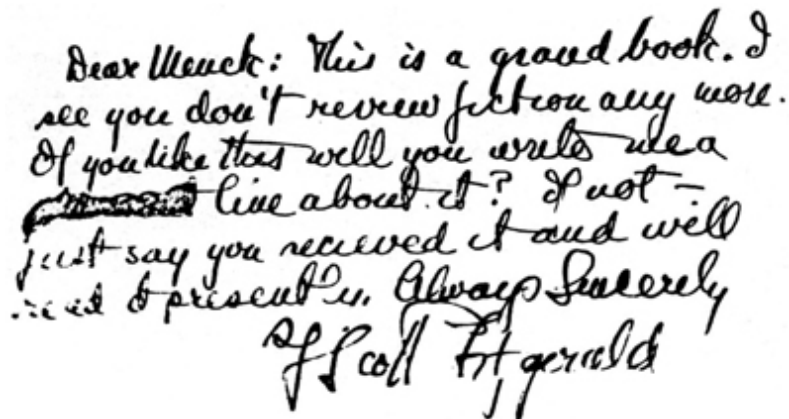 Dear Menck: This is a grand book. I
see you don't review fiction any more.
If you like this will you write me a
line about it? If not –
just say you recieved it and will
read it presently. Always Sincerely
F Scott Fitzgerald